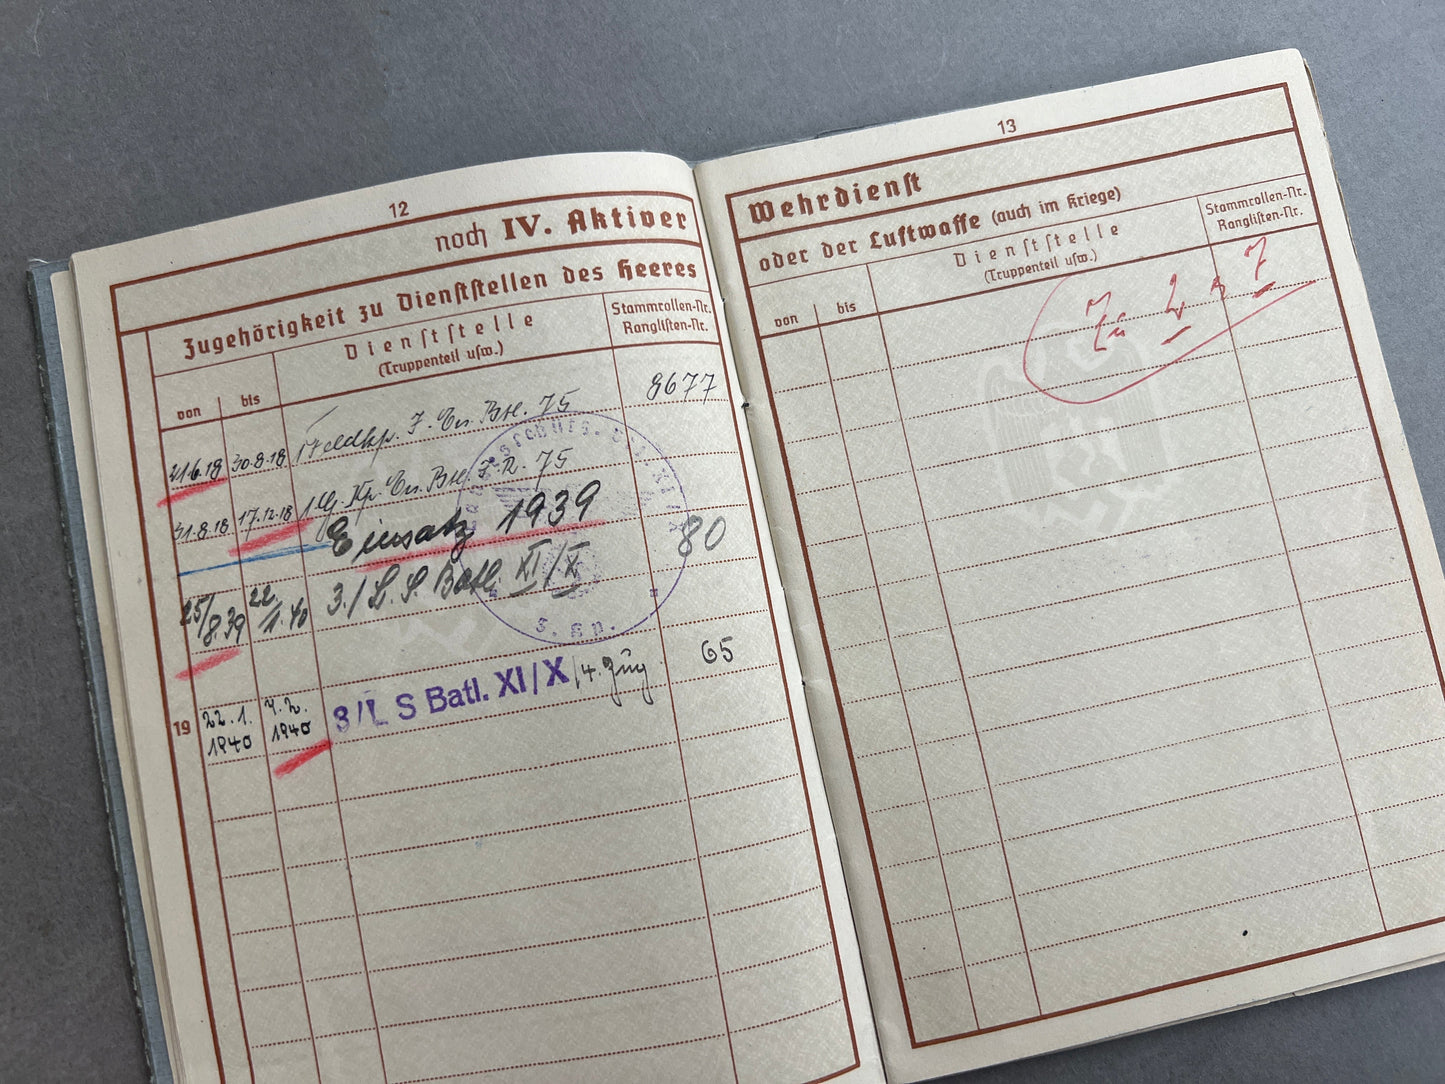 12
noch IV. Aktiver
Zugehörigkeit zu Dienststellen des Heeres
von
bis
Dienststelle
(Truppenteil usw.)
Stammrollen-Nr.
Ranglisten-Nr.
21.6.18 30.8.18 Feldkp. J. Ers. Btl. 75 8677
31.8.18 17.12.18 Kp. Ers. Btl. J. R. 75
Einsatz 1939
25/8.39 22./1.40 3./L. S. Batl XI/X 80
19 22.1.1940 7.2.1940 3/L S Batl. XI/X /4. Zug 65
3. Kp.
13
Wehrdienst
oder der Luftwaffe (auch im Kriege)
von
bis
Dienststelle
(Truppenteil usw.)
Stammrollen-Nr.
Ranglisten-Nr.